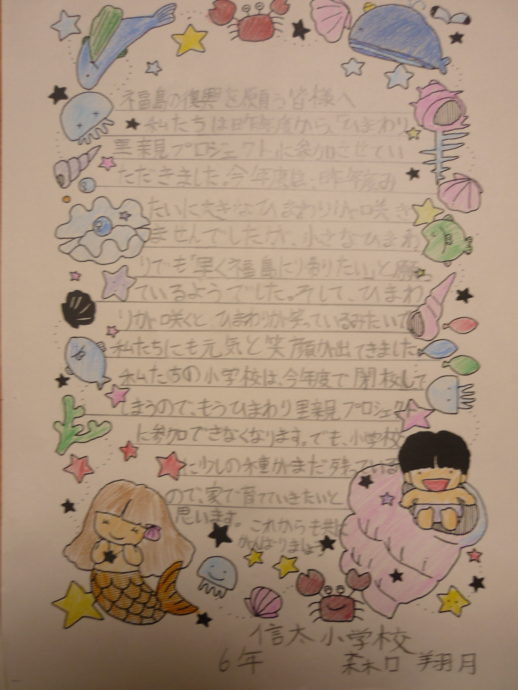 福島の復興を願う皆様へ
私たちは昨年度から、「ひまわり
里親プロジェクト」に参加させてい
ただきました。今年度は、昨年度み
たいに大きなひまわりが咲き
ませんでしたが、小さなひまわ
りでも「早く福島に帰りたい」と願っ
ているようでした。そして、ひまわ
りが咲くと、ひまわりが笑っているみたいで
私たちにも元気と笑顔が出てきました。
私たちの小学校は、今年度で閉校して
しまうので、もうひまわり里親プロジェクト
に参加できなくなります。でも、小学校
に少しの種がまだ残っている
ので、家で育てていきたいと
思います。これからも共に
がんばりましょう
信太小学校
6年 森口 翔月